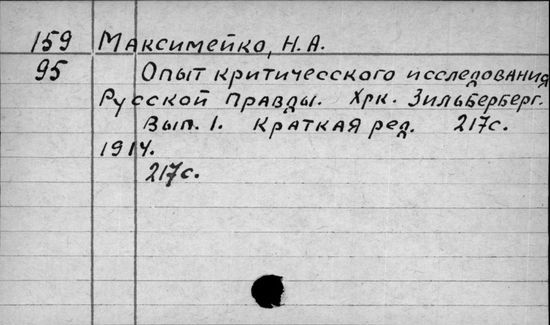 159 Максимейко, Н.А.
95 Опыт критичесского исследования
Русской Правды. Хрк. Зильберберг.
Вып. 1. Краткая ред. 217с.
1914.
217с.